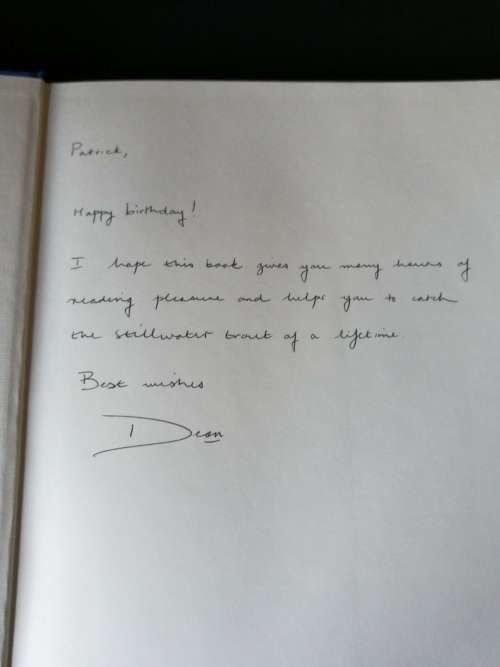 Patrick,
Happy birthday!
I hope this book gives you many hours of
reading pleasure and helps you to catch
the stillwater trout of a lifetime.
Best wishes
Dean